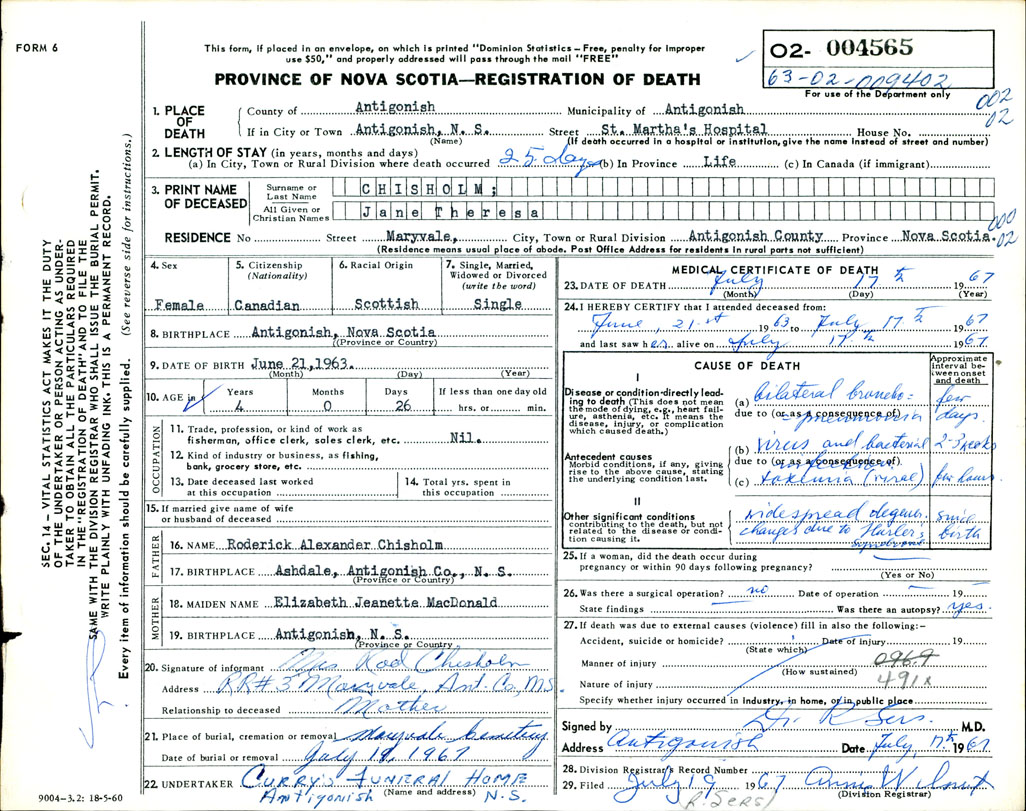 FORM 6
This form, if placed in an envelope, on which is printed "Dominion Statistics – Free, penalty for improper
use $50," and properly addressed will pass through the mail "FREE"
PROVINCE OF NOVA SCOTIA—REGISTRATION OF DEATH
02- 004565
63-02-009402
For use of the Department only
002
02
1. PLACE OF DEATH
County of Antigonish Municipality of Antigonish
If in City or Town Antigonish, N. S. Street St. Martha's Hospital House No.
(Name) (If death occurred in a hospital or institution, give the name instead of street and number)
2. LENGTH OF STAY (in years, months and days)
(a) In City, Town or Rural Division where death occurred 25 days (b) In Province Life (c) In Canada (if immigrant)
3. PRINT NAME OF DECEASED
Surname or Last Name CHISHOLM;
All Given or Christian Names Jane Theresa
RESIDENCE No Street Maryvale, City, Town or Rural Division Antigonish County Province Nova Scotia.
000
02
(Residence means usual place of abode. Post Office Address for residents in rural parts not sufficient)
4. Sex
Female
5. Citizenship
(Nationality)
Canadian
6. Racial Origin
Scottish
7. Single, Married,
Widowed or Divorced
(write the word)
Single
8. BIRTHPLACE Antigonish, Nova Scotia
(Province or Country)
9. DATE OF BIRTH June 21,1963.
(Month) (Day) (Year)
10. AGE in Years Months Days If less than one day old
4 0 26 hrs. or min.
OCCUPATION
11. Trade, profession, or kind of work as
fisherman, office clerk, sales clerk, etc. Nil.
12. Kind of industry or business, as fishing,
bank, grocery store, etc.
13. Date deceased last worked
at this occupation
14. Total yrs. spent in
this occupation
15. If married give name of wife
or husband of deceased
FATHER
16. NAME Roderick Alexander Chisholm
17. BIRTHPLACE Ashdale, Antigonish Co., N. S.
(Province or Country)
MOTHER
18. MAIDEN NAME Elizabeth Jeanette MacDonald
19. BIRTHPLACE Antigonish, N. S.
(Province or Country
20. Signature of informant Mrs Rod Chisholm
Address RR#3 Maryvale, Ant. Co, NS.
Relationship to deceased Mother
21. Place of burial, cremation or removal Maryvale Cemetery
Date of burial or removal July 19, 1967
22. UNDERTAKER Curry's Funeral Home
Antigonish (Name and address) N.S.
9004–3.2: 18-5-60
MEDICAL CERTIFICATE OF DEATH
23. DATE OF DEATH July 17th 1967
(Month) (Day) (Year)
24. I HEREBY CERTIFY that I attended deceased from:
June, 21st 1963 to July 17th 1967
and last saw her alive on July 17th 1967.
CAUSE OF DEATH
Approximate interval between onset and death
I
Disease or condition directly leading to death (This does not mean the mode of dying, e.g., heart failure, asthenia, etc. It means the disease, injury, or complication which caused death.)
(a) bilateral broncho- few
due to (or as a consequence of) pneumonia days
Antecedent causes
Morbid conditions, if any, giving rise to the above cause, stating the underlying condition last.
(b) virus and bacterial 2-3 weeks
due to (or as a consequence of)
(c) (viral) few hours
II
Other significant conditions
contributing to the death, but not related to the disease or condition causing it.
widespread degen. since
changes due to Hurler's birth
syndrome
25. If a woman, did the death occur during
pregnancy or within 90 days following pregnancy?
(Yes or No)
26. Was there a surgical operation? no Date of operation 19
State findings Was there an autopsy? yes.
27. If death was due to external causes (violence) fill in also the following:–
Accident, suicide or homicide? Date of injury 19
(State which)
Manner of injury 096.9
(How sustained)
Nature of injury 491x
Specify whether injury occurred in industry, in home, or in public place
Signed by Dr. R Sers. M.D.
Address Antigonish Date July, 17th 1967
28. Division Registrar's Record Number
29. Filed July 19 1967
(Division Registrar)
(R. SERS)
SEC. 14 – VITAL STATISTICS ACT MAKES IT THE DUTY
OF THE UNDERTAKER OR PERSON ACTING AS UNDER-
TAKER TO OBTAIN ALL THE PARTICULARS REQUIRED
IN THE "REGISTRATION OF DEATH" AND TO FILE THE
SAME WITH THE DIVISION REGISTRAR WHO SHALL ISSUE THE BURIAL PERMIT.
WRITE PLAINLY WITH UNFADING INK. THIS IS A PERMANENT RECORD.
Every item of information should be carefully supplied. (See reverse side for instructions.)